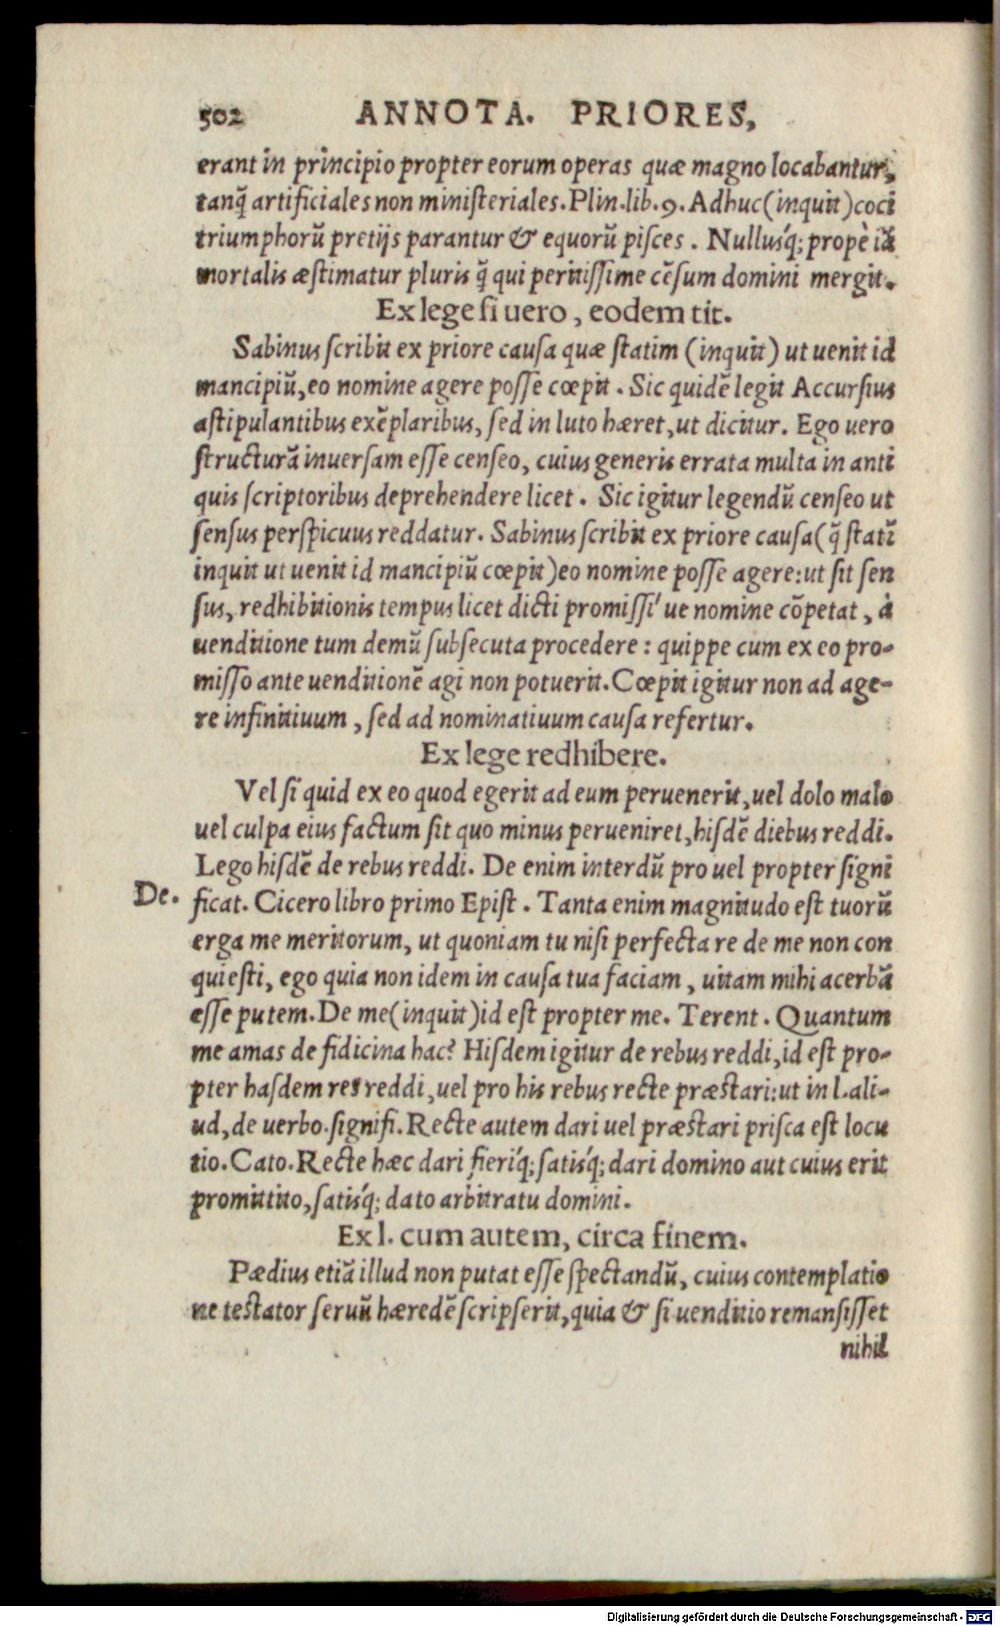 502 ANNOTA. PRIORES,
erant in principio propter eorum operas quæ magno locabantur,
tanq̃ artificiales non miniſteriales. Plin. lib. 9. Adhuc (inquit) coci
triumphorũ pretijs parantur & equorũ piſces. Nullusq́; propè iã
mortalis æſtimatur pluris q̃ qui peritiſſime cẽſum domini mergit.
Ex lege ſi uero, eodem tit.
Sabinus ſcribit ex priore cauſa quæ ſtatim (inquit) ut uenit id
mancipiũ, eo nomine agere poſſe cœpit. Sic quidẽ legit Accurſius
aſtipulantibus exẽplaribus, ſed in luto hæret, ut dicitur. Ego uero
ſtructurã inuerſam eſſe cenſeo, cuius generis errata multa in anti
quis ſcriptoribus deprehendere licet. Sic igitur legendũ cenſeo ut
ſenſus perſpicuus reddatur. Sabinus ſcribit ex priore cauſa (q̃ ſtatĩ
inquit ut uenit id mancipiũ cœpit) eo nomine poſſe agere: ut ſit ſen
ſus, redhibitionis tempus licet dicti promiſſi' ue nomine cõpetat, à
uenditione tum demũ ſubſecuta procedere: quippe cum ex eo pro-
miſſo ante uenditionẽ agi non potuerit. Cœpit igitur non ad age-
re infinitiuum, ſed ad nominatiuum cauſa refertur.
Ex lege redhibere.
Vel ſi quid ex eo quod egerit ad eum peruenerit, uel dolo malo
uel culpa eius factum ſit quo minus perueniret, hiſdẽ diebus reddi.
Lego hiſdẽ de rebus reddi. De enim interdũ pro uel propter ſigni
De. ficat. Cicero libro primo Epiſt. Tanta enim magnitudo eſt tuorũ
erga me meritorum, ut quoniam tu niſi perfecta re de me non con
quieſti, ego quia non idem in cauſa tua faciam, uitam mihi acerbã
eſſe putem. De me (inquit) id eſt propter me. Terent. Quantum
me amas de fidicina hac? Hiſdem igitur de rebus reddi, id eſt pro-
pter haſdem res reddi, uel pro his rebus recte præſtari: ut in l. ali-
ud, de uerbo. ſignifi. Recte autem dari uel præſtari priſca eſt locu
tio. Cato. Recte hæc dari fieriq́; ſatisq́; dari domino aut cuius erit
promittito, ſatisq́; dato arbitratu domini.
Ex l. cum autem, circa finem.
Pædius etiã illud non putat eſſe ſpectandũ, cuius contemplatio
ne teſtator ſeruũ hæredẽ ſcripſerit, quia & ſi uenditio remanſiſſet
nihil
Digitalisierung gefördert durch die Deutsche Forschungsgemeinschaft - DFG